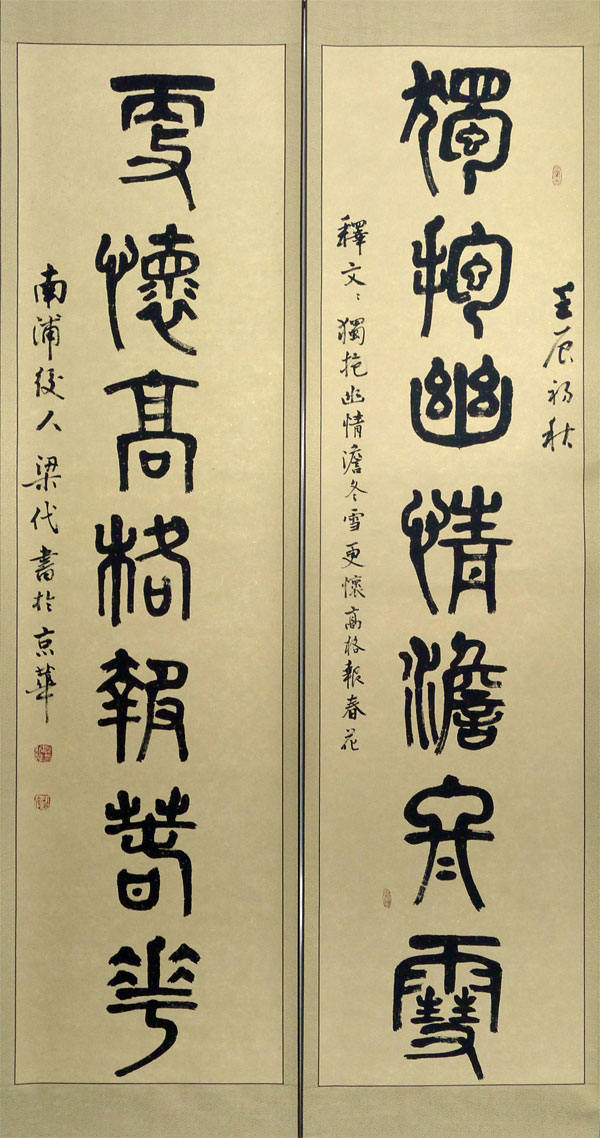 壬辰初秋
獨抱幽情澹冬雪
釋文：獨抱幽情澹冬雪更懷高格報春花
更懷高格報春花
南浦後人梁代書於京華